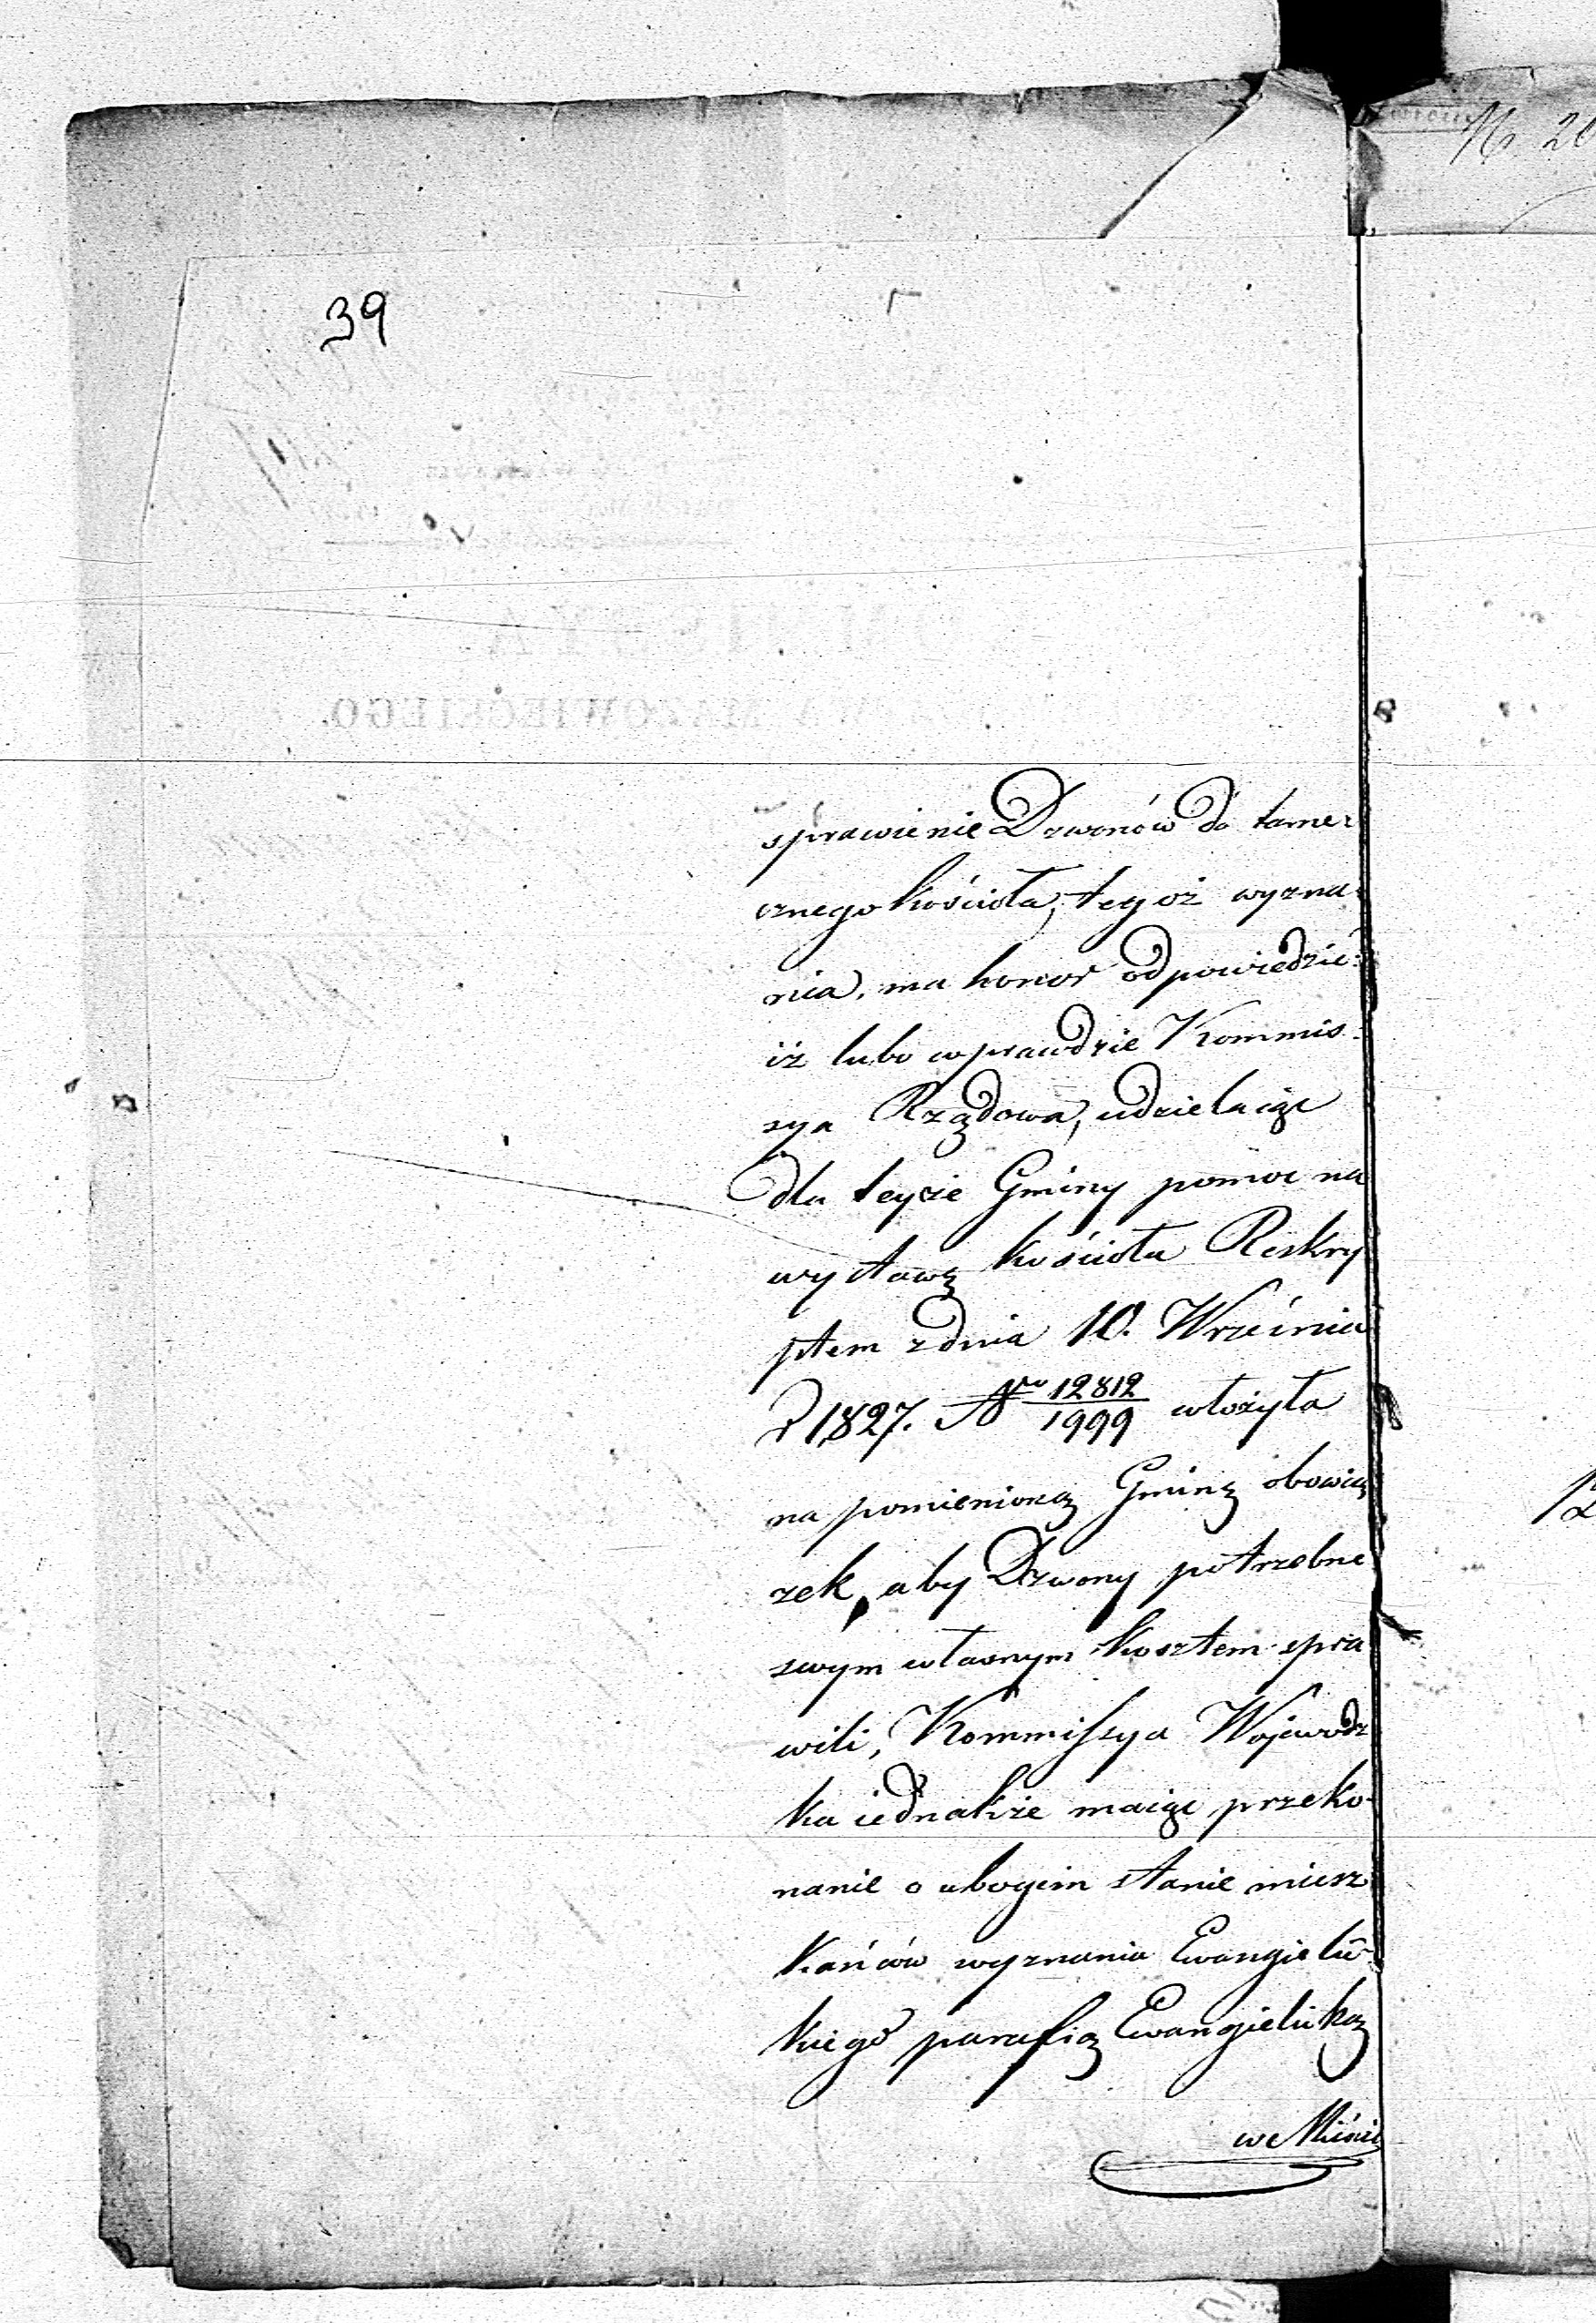 39
sprawienie Dzwonów do tame:
cznego kościoła, tegoż wyzna:
nia, ma honor odpowiedzieć
iż lubo wprawdzie Kommis:
sya Rządowa, udzielaiąc
dla teyże Gminy pomoc na
wystawę kościoła Reskry
ptem z dnia 10. Września
r 1827. Nro 12812/1999 włożyła
na pomienioną Gminę obowią
zek, aby Dzwony potrzebne
swym własnym kosztem spra
wili, Kommissya Wojewodz
ka iednakże maiąc przeko-
nanie o ubogim stanie miesz
kańców wyznania Ewangielic
kiego parafią Ewangielicką
we